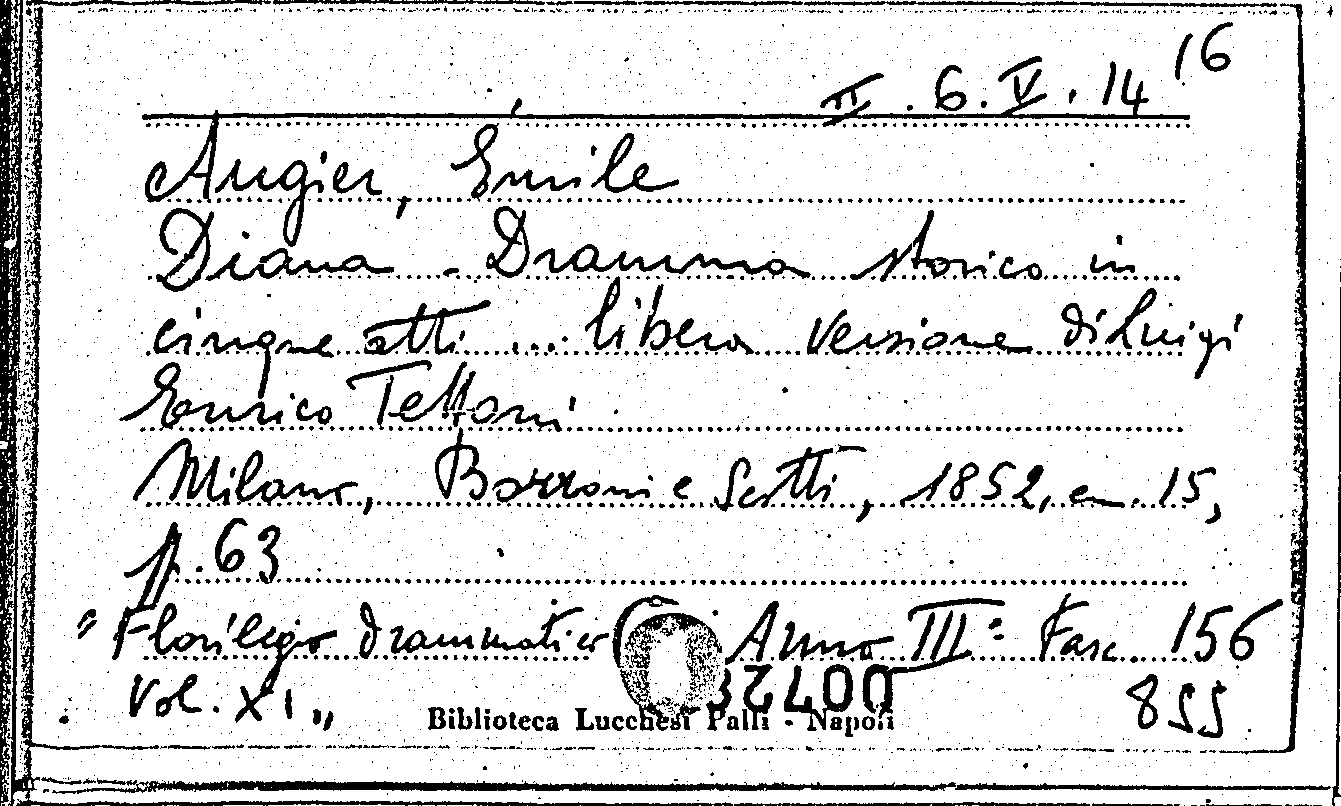 II. 6. V. 14 16
Augier, Émile
Diana - Dramma storico in
cinque atti ... libera versione di Luigi
Enrico Tettoni
Milano, Borroni e Scotti, 1852, cm. 15,
pp. 63
"Florilegio drammatico Anno III° Fasc. 156
Vol. XI"
855
Biblioteca Lucchesi Palli - Napoli